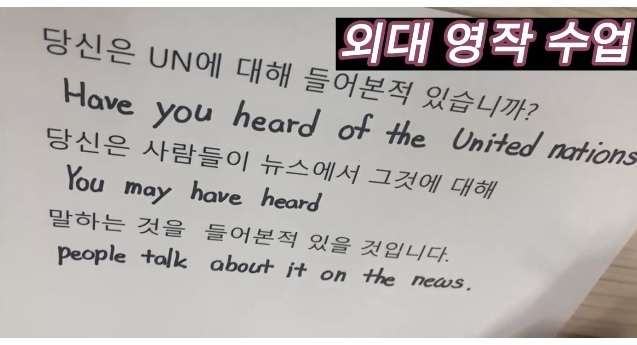 외대 영작 수업
당신은 UN에 대해 들어본적 있습니까?
Have you heard of the United nations
당신은 사람들이 뉴스에서 그것에 대해
You may have heard
말하는 것을 들어본적 있을 것입니다.
people talk about it on the news.